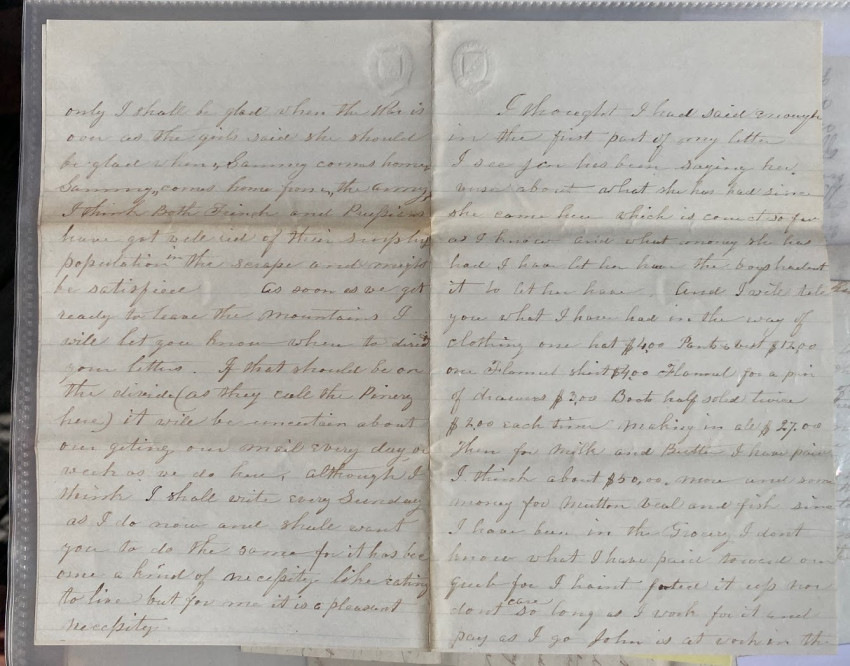 only I shall be glad when the War is
over as the girls said she should
be glad when "Sammy comes home,
Sammy, comes home from" the army,
I think Both French and Prussians
have got well rid of their surplus
population in the scrape and might
be satisfied As soon as we get
ready to leave the mountains I
will let you know when to direct
your letters. If that should be on
the divide (as they call the Pinery
here) it will be uncertain about
our geting our mail every day or
week as we do here, although I
think I shall write every Sunday
as I do now and shall want
you to do the same for it has bec
ome a kind of necessity like eating
to live but for me it is a pleasant
necessity
I thought I had said enough
in the first part of my letter
I see Jen has been saying her
verse about what she has had since
she came here which is correct so far
as I know and what money she has
had I have let her have the boys hadent
it to let her have. And I will tell
you what I have had in the way of
clothing one hat $4.00 Pants & vest $12.00
one Flannel shirt $4.00 Flannel for a pair
of drawers $3.00 Boots half soled twice
$2.00 each time making in all $27.00
Then for Milk and Butter I have paid
I think about $50.00. more and some
money for mutton veal and fish since
I have been in the Grocery I dont
know what I have paid toward our
grub for I haint footed it up nor
dont care so long as I work for it and
pay as I go John is at work in the